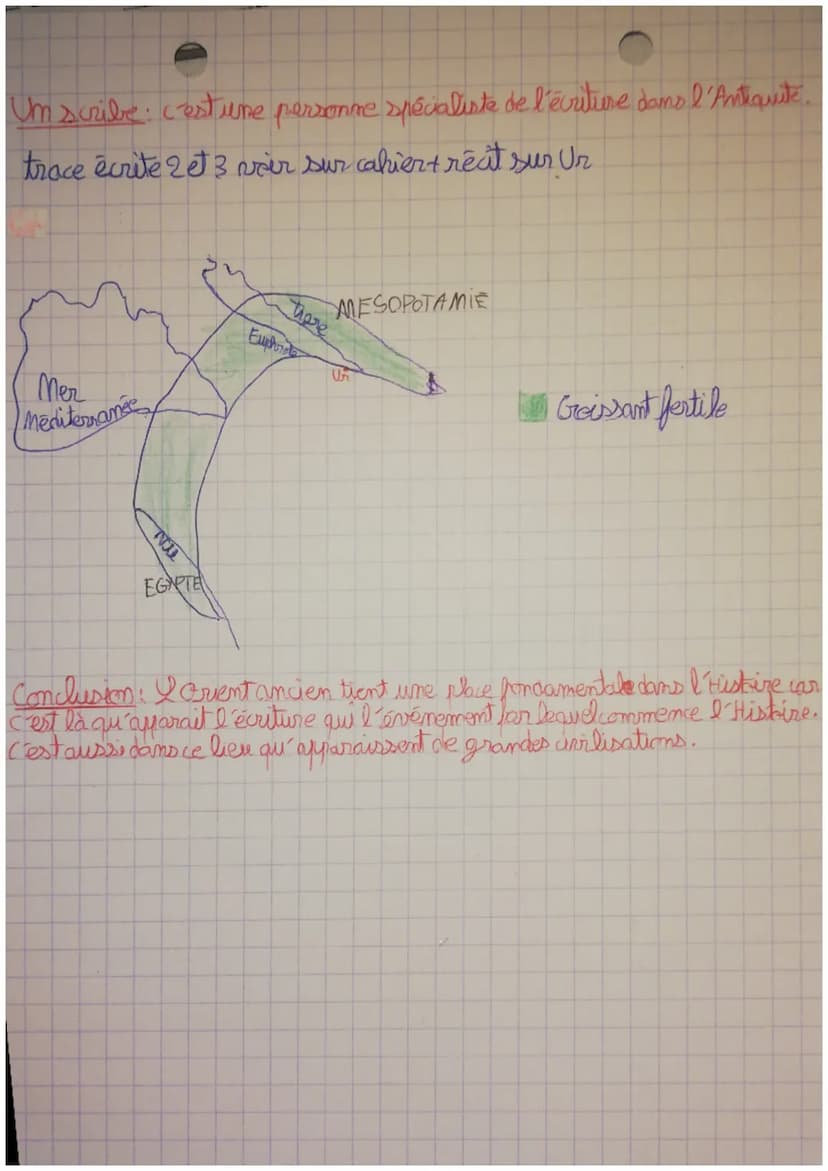 Un scribe : c'est une personne spécialiste de l'écriture dans l'Antiquité.
trace écrite 2 et 3 voir sur cahier + récit sur Ur
MESOPOTAMIE
Tigre
Euphrate
Ur
Mer
Méditerranée
Croissant fertile
Nil
EGYPTE
Conclusion : L'Orient ancien tient une place fondamentale dans l'Histoire car
c'est là qu'apparait l'écriture qui l'événement par lequel commence l'Histoire.
C'est aussi dans ce lieu qu'apparaissent de grandes civilisations.